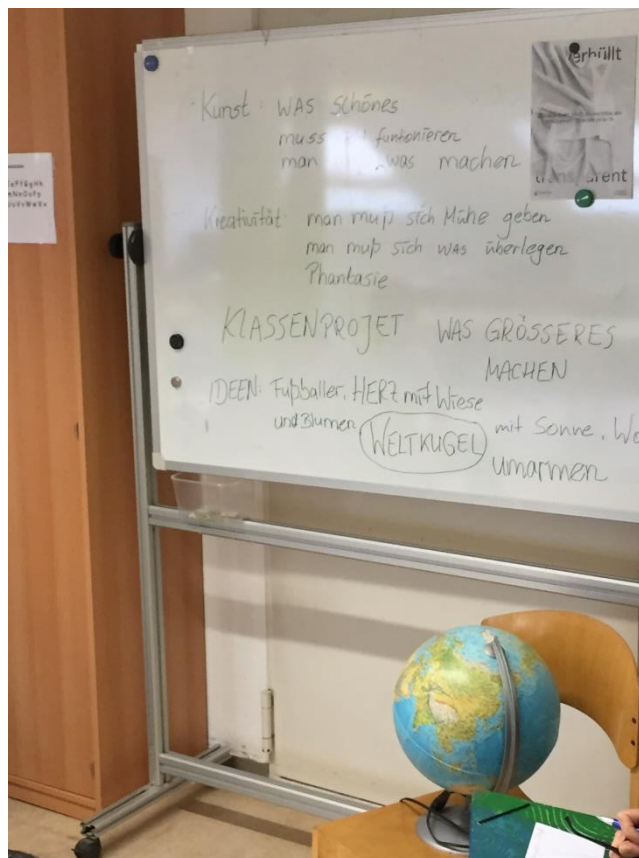 Kunst WAS schönes
muss funtonieren
man was machen
Kreativität man muß sich Mühe geben
man muß sich WAS überlegen
Phantasie
KLASSENPROJET WAS GRÖSSERES
MACHEN
IDEEN: Fußballer, HERZ mit Wiese
und Blumen WELTKUGEL mit Sonne, Wo
umarmen
verhüllt